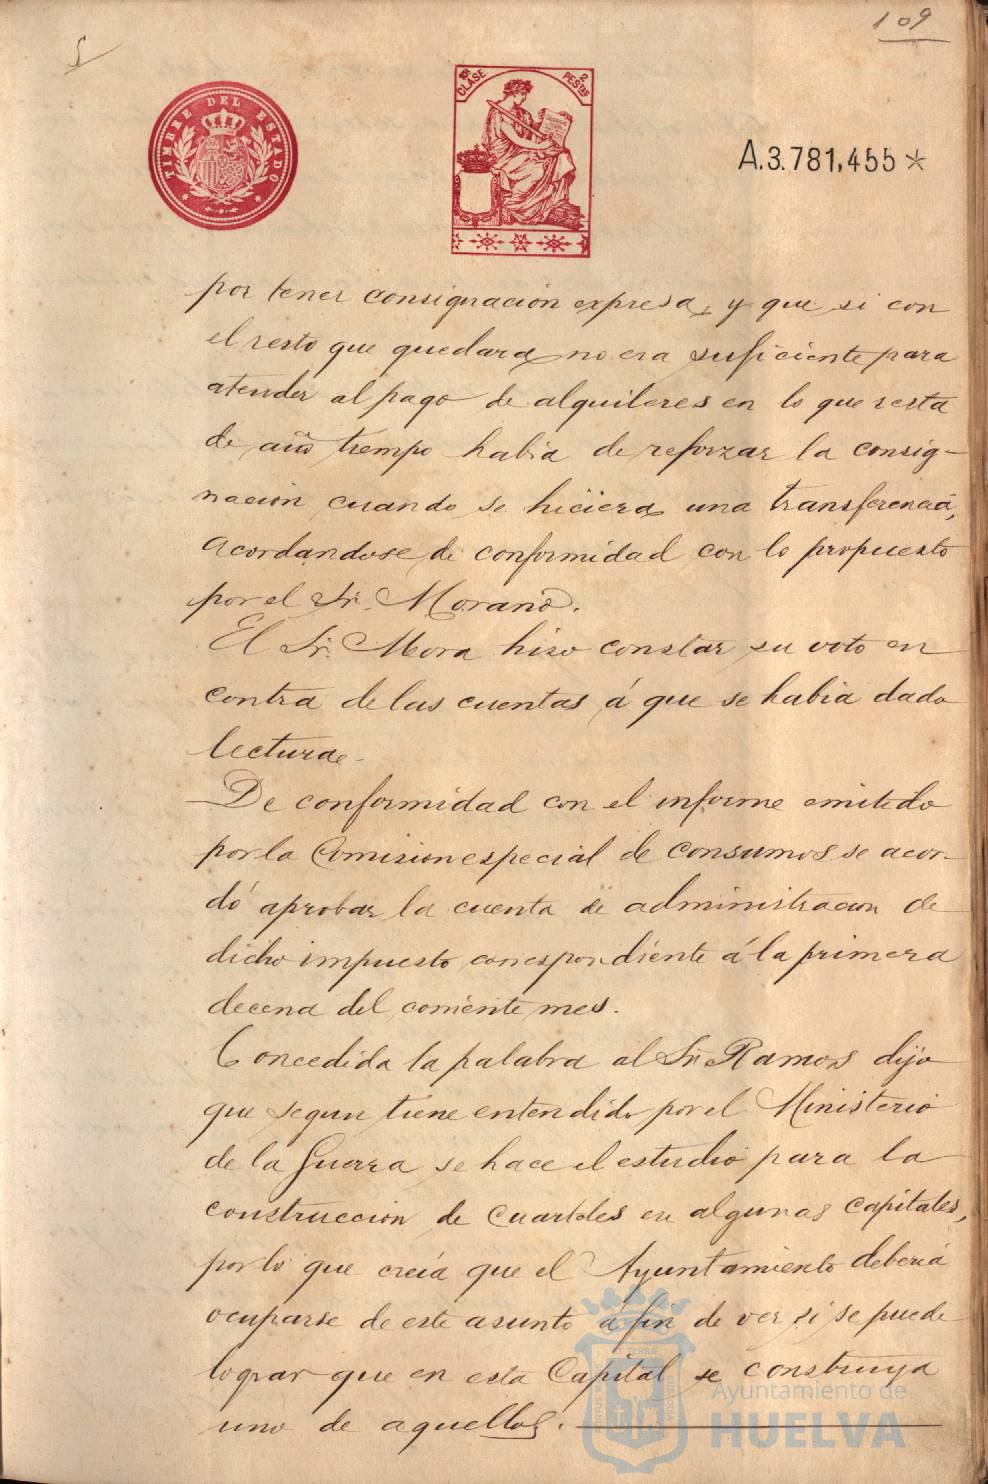 109
TIMBRE DEL ESTADO
10ª CLASE
2 PESTAS
A.3.781,455*
por tener consignación expresa, y que si con
el resto que quedara no era suficiente para
atender al pago de alquileres en lo que resta
de año tiempo habia de reforzar la consig-
nacion cuando se hiciera una transferencia,
acordandose de conformidad con lo propuesto
por el Sr. Morano.
El Sr. Mora hizo constar su voto en
contra de las cuentas á que se habia dado
lectura.
De conformidad con el informe emitido
por la Comision especial de consumos se acor-
dó aprobar la cuenta de administracion de
dicho impuesto correspondiente á la primera
decena del corriente mes.
Concedida la palabra al Sr. Ramos dijo
que segun tiene entendido por el Ministerio
de la Guerra se hace el estudio para la
construccion de cuarteles en algunas capitales,
por lo que creía que el Ayuntamiento debería
ocuparse de este asunto á fin de ver si se puede
lograr que en esta Capital se construya
uno de aquellos.
Ayuntamiento de
HUELVA